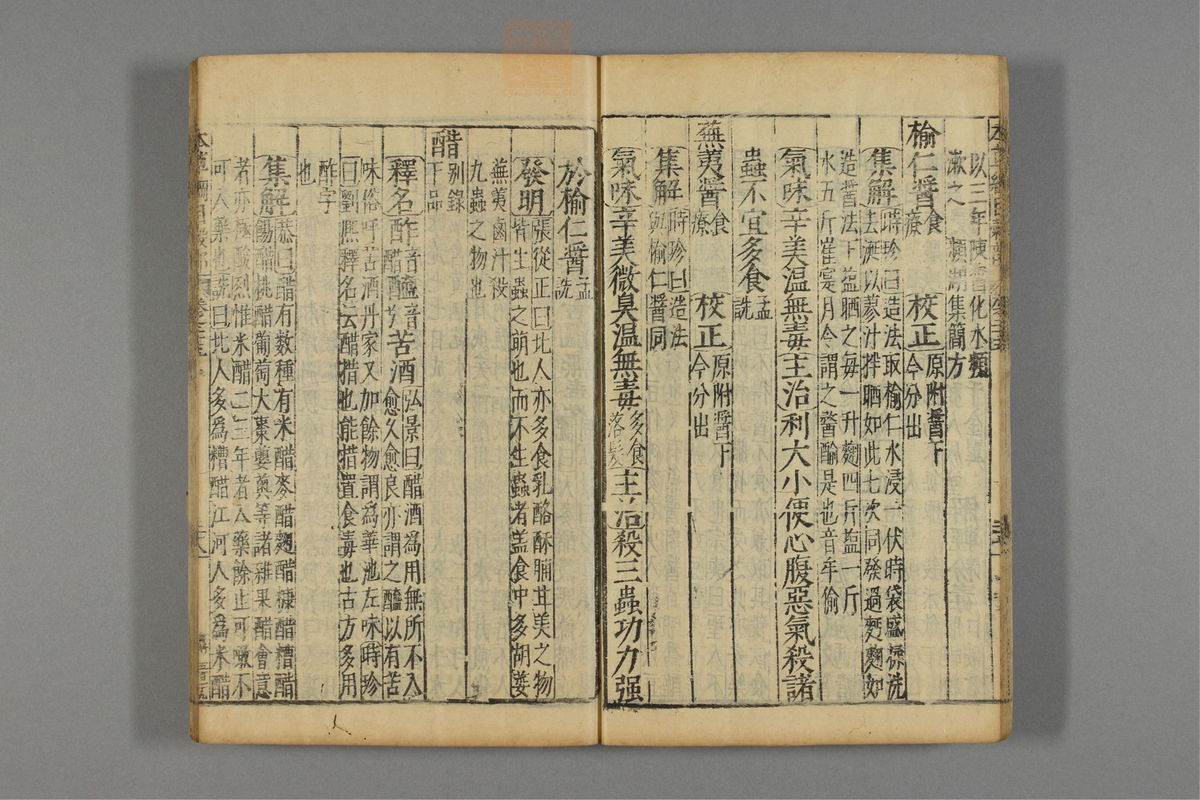 以三年陳醬化水類
漱之 瀕湖集簡方
榆仁醬食療 校正原附醬下今分出
集解時珍曰造法取榆仁水浸一伏時袋盛揉洗
去涎以蓼汁拌晒如此七次同發過麪麴如
造醬法下盐晒之每一升麴四斤盐一斤
水五斤崔寔月令謂之䤅酴是也音牟偷
氣味辛美温無毒主治利大小便心腹惡氣殺諸
蟲不宜多食孟詵
蕪荑醬食療 校正原附醬下今分出
集解時珍曰造法與榆仁醬同
氣味辛美微臭温無毒多食落髮主治殺三蟲功力强
於榆仁醬孟詵
發明張從正曰北人亦多食乳酪酥脯甘美之物
皆生蟲之萌也而不生蟲者盖食中多胡荽
蕪荑鹵汁殺
九蟲之物也
醋别錄下品
釋名酢音醋醯音兮苦酒弘景曰醋酒為用無所不入
愈久愈良亦謂之醯以有苦
味俗呼苦酒丹家又加餘物謂為華池左味時珍
曰劉熈釋名云醋措也能措置食毒也古方多用
酢字
也
集解恭曰醋有数種有米醋麥醋麴醋糠醋糟醋
餳醋桃醋葡萄大棗蘡薁等諸雜果醋會意
者亦極酸烈惟米醋二三年者入藥餘止可啖不
可入藥也詵曰北人多為糟醋江河人多為米醋